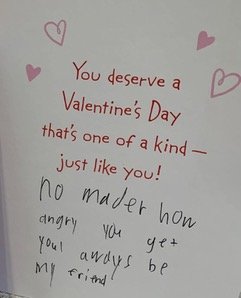 You deserve a
Valentine's Day
that's one of a kind—
just like you!
no mader how
angry you get
youl awdys be
my friend